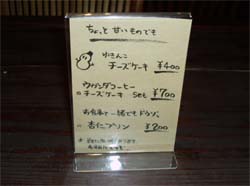 ちょっと 甘いものでも
ゆきんこ
チーズケーキ ¥400
ウガンダコーヒー
チーズケーキ set ¥700
お食事で一緒でもドウゾ。
杏仁プリン ¥200